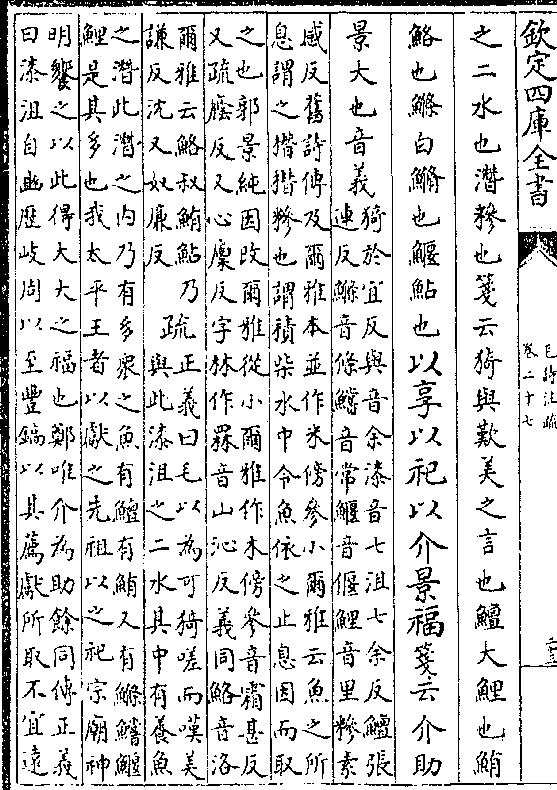 欽定四庫全書
毛詩注疏
卷二十七
之二水也潛糝也箋云猗與歎美之言也鱣大鯉也鮪
鮥也鰷白鰷也鰋鮎也以享以祀以介景福箋云介助
景大也音義
猗於宜反與音余漆音七沮七余反鱣張
連反鰷音條鱨音常鰋音偃鯉音里糝素
感反舊詩傳及爾雅本並作米傍參小爾雅云魚之所
息謂之橬橬糝也謂積柴水中令魚依之止息因而取
之也郭景純因改爾雅從小爾雅作木傍參音霜甚反
又疏廕反又心廩反字林作罧音山沁反義同鮥音洛
爾雅云鮥叔鮪鮎乃
謙反沈又奴廉反
疏
正義曰毛以為可猗嗟而嘆美
與此漆沮之二水其中有養魚
之潛此潛之内乃有多衆之魚有鱣有鮪又有鰷鱨鰋
鯉是其多也我太平王者以獻之先祖以之祀宗廟神
明饗之以此得大大之福也鄭唯介為助餘同傳正義
曰漆沮自豳歷岐周以至豐鎬以其薦獻所取不宜遠